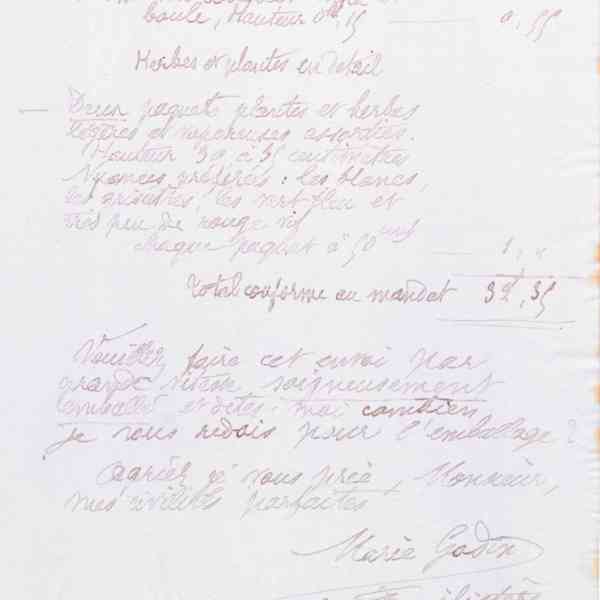 boule, Hauteur 0m,15 0,55
Herbes et plantes en détail
Deux paquets plantes et herbes
légères et vaporeuses assorties.
Hauteur 30 à 35 centimètres
Nuances préférées : les blancs,
les grisâtres, les vert-bleu et
très peu de rouge vif
chaque paquet à 50 1, "
Total conforme au mandat 32,35
Veuillez faire cet envoi par
grande vitesse soigneusement
emballé et dites-moi combien
je vous redois pour l'emballage ?
Agréez je vous prie, Monsieur,
mes civilités parfaites
Marie Godin